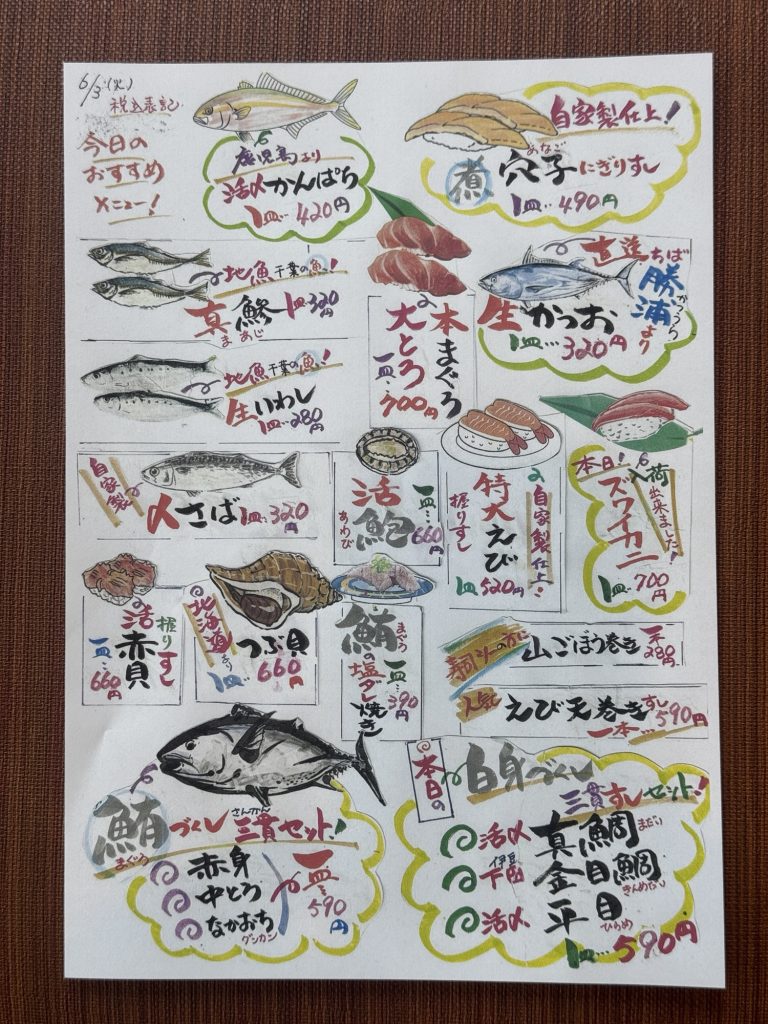 6/3(火)
税込表記
今日の
おすすめ
メニュー!
鹿児島より
活〆かんぱち
1皿…420円
自家製仕上!
あなご
煮穴子にぎりすし
1皿…490円
地魚千葉の魚!
真鯵1皿320円
まあじ
直送ちば
勝浦より
かつうら
生かつお
1皿…320円
本まぐろ
大とろ
一皿…700円
地魚千葉の魚!
生いわし
1皿…280円
自家製
〆さば1皿…320円
活鮑
あわび
一皿…660円
特大えび
握りすし
自家製仕上!
1皿520円
本日!入荷
出来ました!
ズワイカニ
1皿…700円
握りすし
活赤貝
一皿…660円
北海道より
つぶ貝
1皿…660円
まぐろ
鮪の塩ダレ焼き
一皿…390円
寿司〆の方に
山ごぼう巻き一本280円
人気
えび天巻きすし590円
一本…
鮪づくし三貫セット!
まぐろ
さんかん
赤身
中とろ
なかおち
グンカン
一皿…590円
本日の
白身づくし
三貫すしセット!
活〆真鯛まだい
伊豆
下田金目鯛
きんめだい
活〆平目
ひらめ
1皿…590円